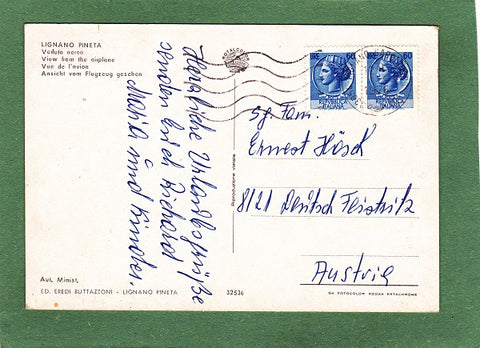 LIGNANO PINETA
Veduta aerea
View from the airplane
Vue de l'avion
Ansicht vom Flugzeug gesehen
Herzliche Urlaubsgrüße
senden Euch Richard
Maria und Kinder.
Sg. Fam.
Ernest Hösch
8121 Deutsch Feistritz
Austria
Riproduzione vietata
Aut. Minist.
ED. EREDI BUTTAZZONI - LIGNANO PINETA
32536
DA FOTOCOLOR KODAK EKTACHROME